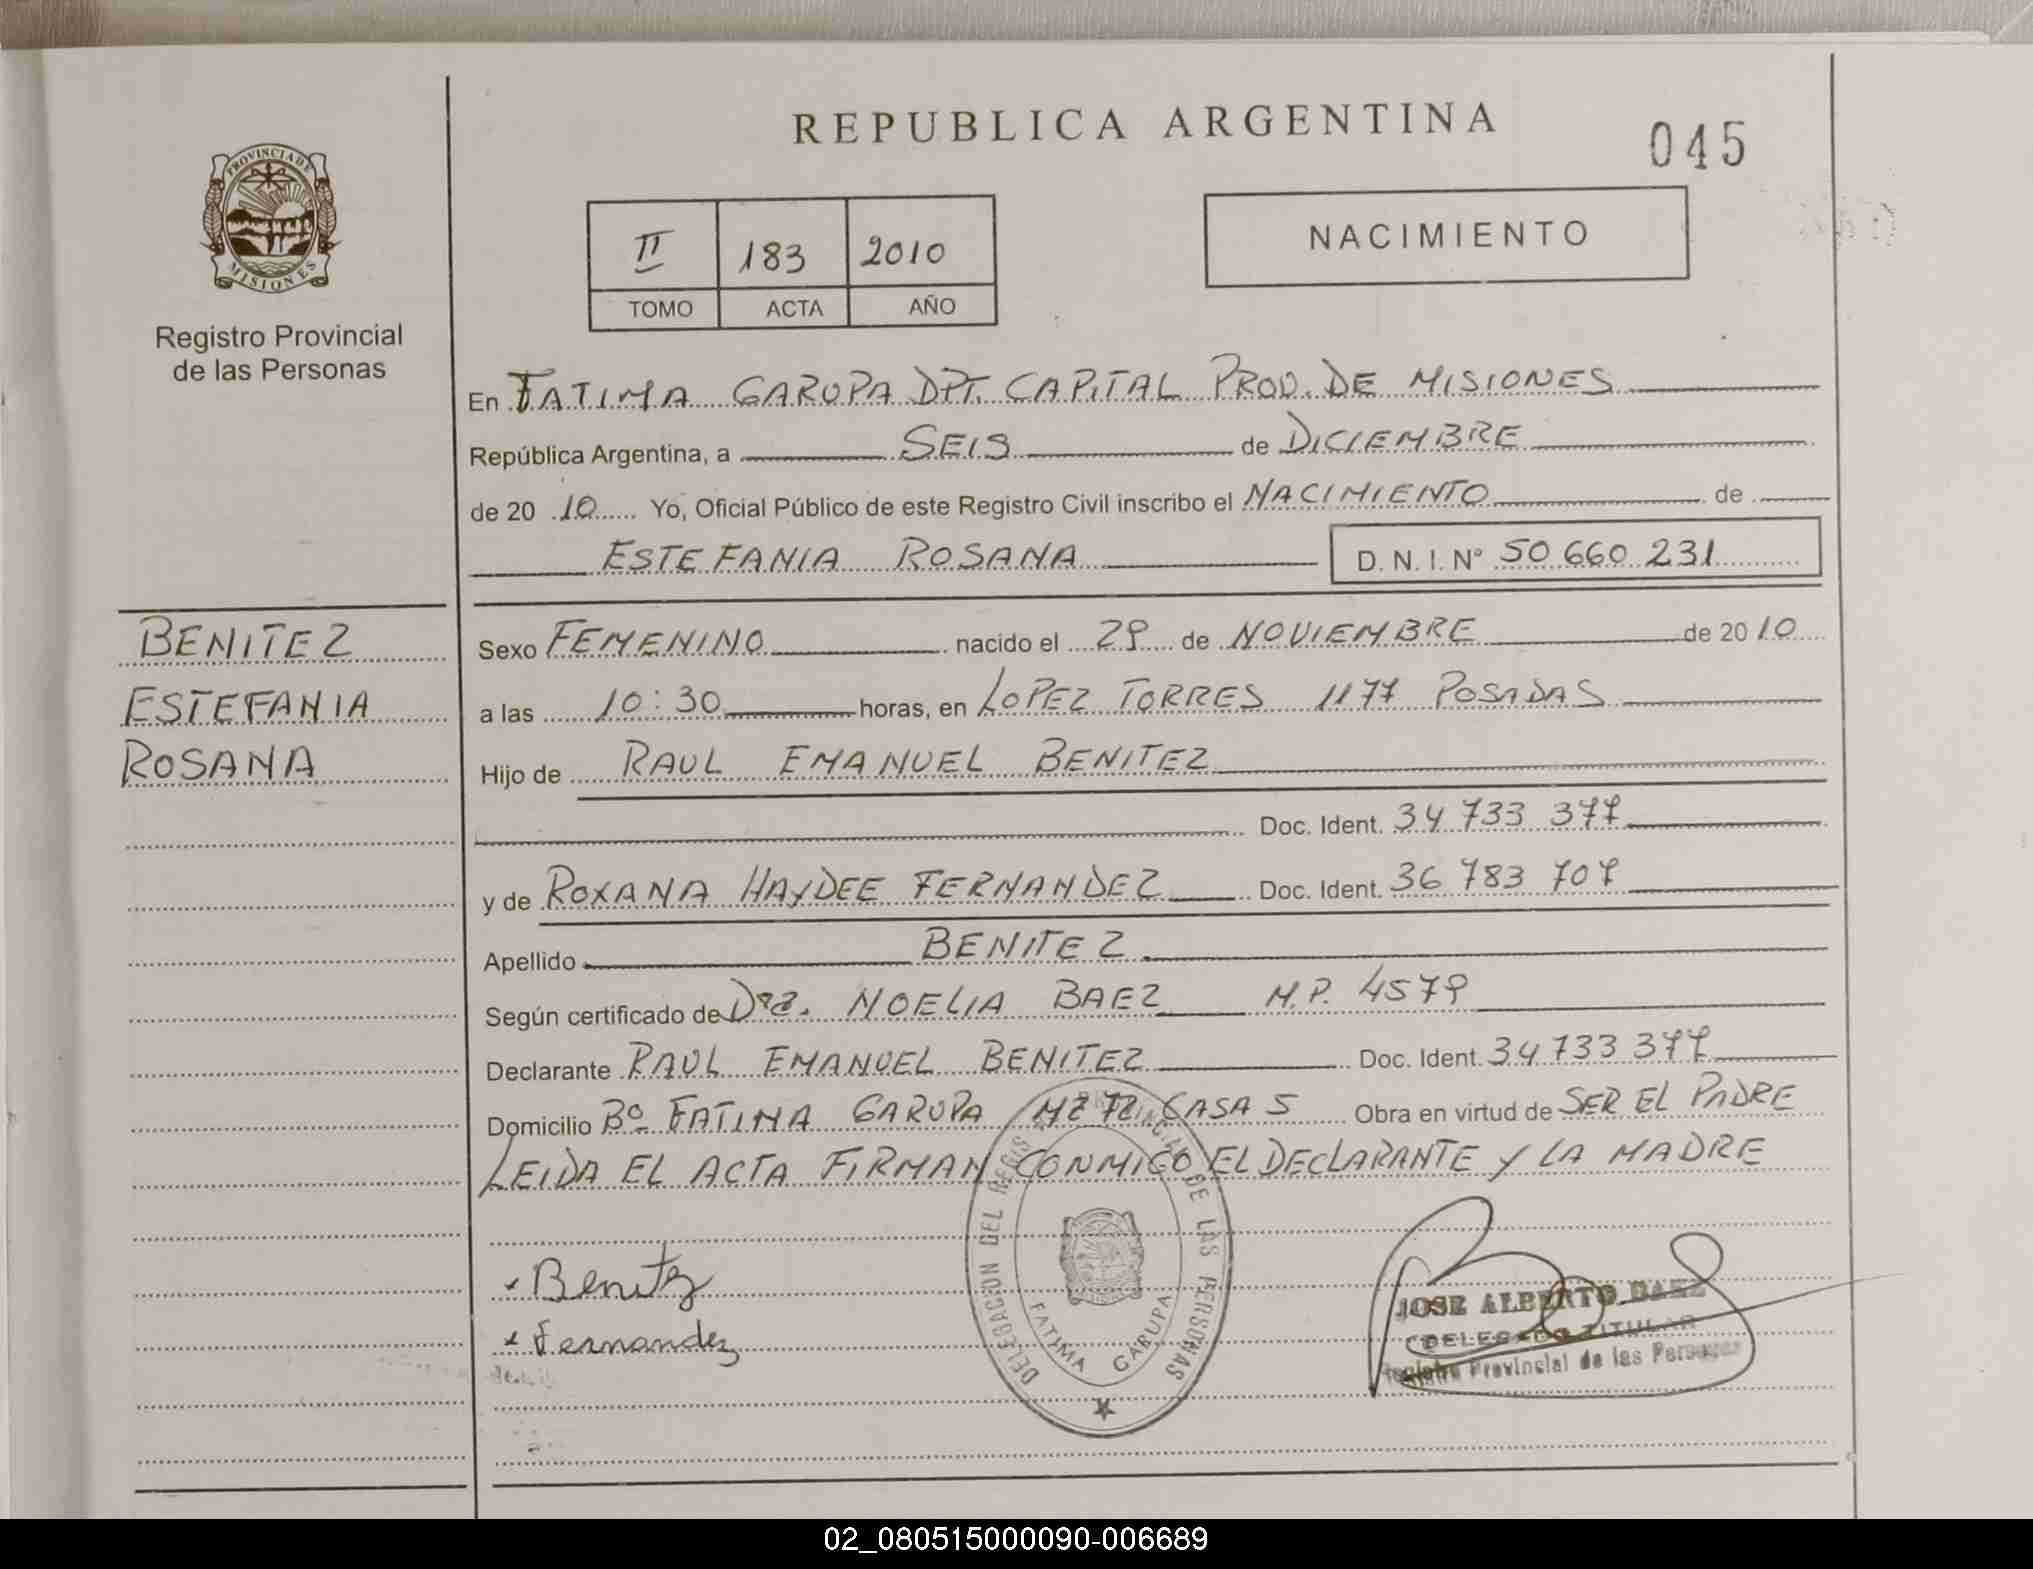 REPUBLICA ARGENTINA
045
PROVINCIA DE
MISIONES
Registro Provincial
de las Personas
II 183 2010
TOMO ACTA AÑO
NACIMIENTO
En FATIMA GARUPA DPT. CAPITAL PROV. DE MISIONES
República Argentina, a SEIS de DICIEMBRE
de 20 10 Yo, Oficial Público de este Registro Civil inscribo el NACIMIENTO de
ESTEFANIA ROSANA D. N. I. Nº 50 660 231
BENITEZ
ESTEFANIA
ROSANA
Sexo FEMENINO nacido el 29 de NOVIEMBRE de 20 10
a las 10:30 horas, en LOPEZ TORRES 1177 POSADAS
Hijo de RAUL EMANUEL BENITEZ
Doc. Ident. 34 733 377
y de ROXANA HAYDEE FERNANDEZ Doc. Ident. 36 783 707
Apellido BENITEZ
Según certificado de Dra. NOELIA BAEZ M.P. 4579
Declarante RAUL EMANUEL BENITEZ Doc. Ident. 34 733 377
Domicilio Bº FATIMA GARUPA MZ 72 CASA 5 Obra en virtud de SER EL PADRE
LEIDA EL ACTA FIRMAN CONMIGO EL DECLARANTE Y LA MADRE
x Benitez
x Fernandez
DELEGACION DEL REGISTRO PROVINCIAL DE LAS PERSONAS
FATIMA GARUPA
JOSE ALBERTO BAEZ
DELEGADO TITULAR
Registro Provincial de las Personas
02_080515000090-006689